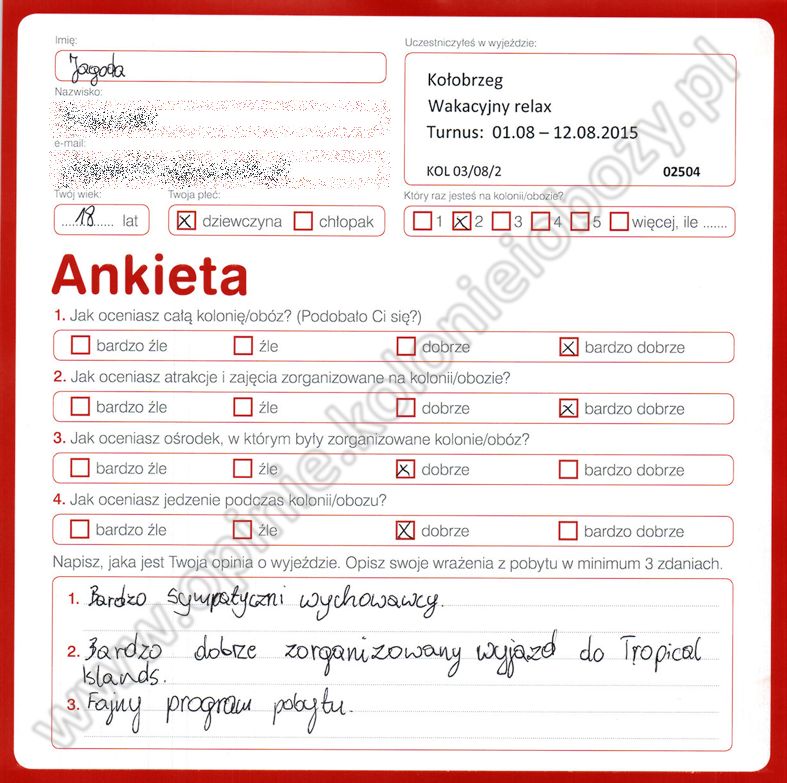 Imię:
Jagoda
Nazwisko:
e-mail:
Twój wiek:
18 lat
Twoja płeć:
dziewczyna chłopak
Uczestniczyłeś w wyjeździe:
Kołobrzeg
Wakacyjny relax
Turnus: 01.08 – 12.08.2015
KOL 03/08/2 02504
Który raz jesteś na kolonii/obozie?
1 2 3 4 5 więcej, ile .......
Ankieta
1. Jak oceniasz całą kolonię/obóz? (Podobało Ci się?)
bardzo źle źle dobrze bardzo dobrze
2. Jak oceniasz atrakcje i zajęcia zorganizowane na kolonii/obozie?
bardzo źle źle dobrze bardzo dobrze
3. Jak oceniasz ośrodek, w którym były zorganizowane kolonie/obóz?
bardzo źle źle dobrze bardzo dobrze
4. Jak oceniasz jedzenie podczas kolonii/obozu?
bardzo źle źle dobrze bardzo dobrze
Napisz, jaka jest Twoja opinia o wyjeździe. Opisz swoje wrażenia z pobytu w minimum 3 zdaniach.
1. Bardzo sympatyczni wychowawcy.
2. Bardzo dobrze zorganizowany wyjazd do Tropical
Islands.
3. Fajny program pobytu.
www.opinie.kolonieiobozy.pl